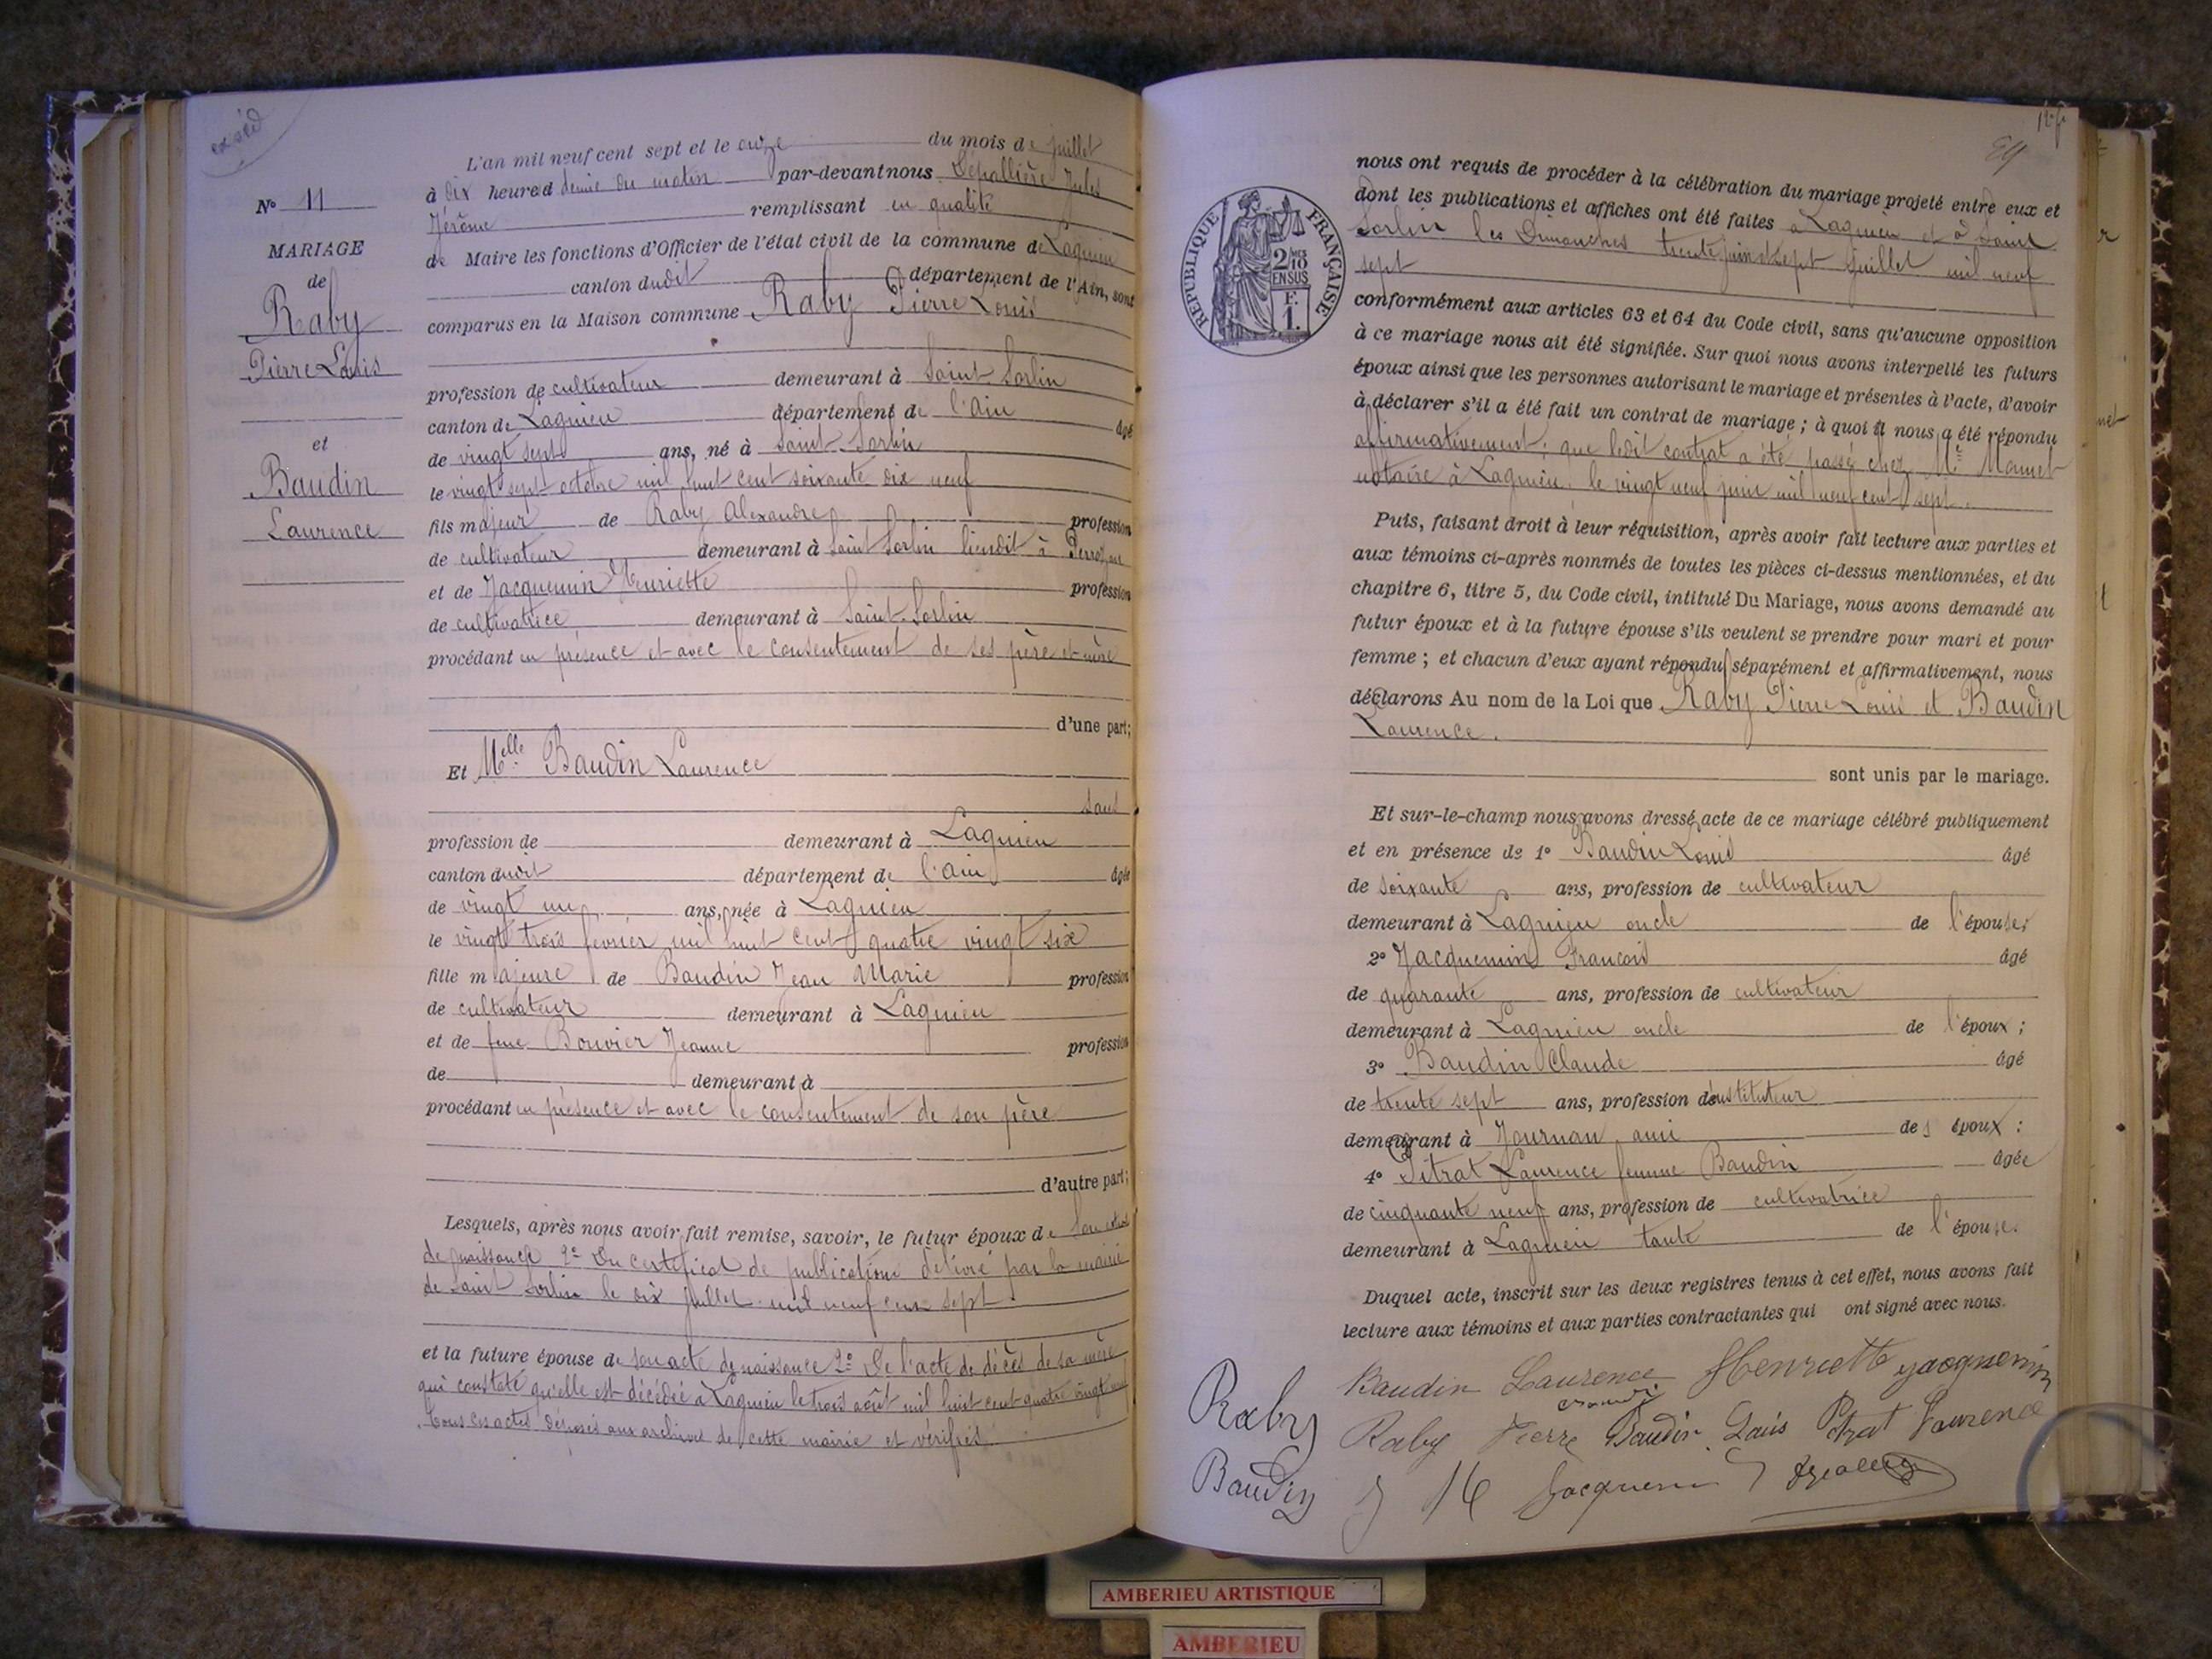 exséd
N° 11
MARIAGE
de
Raby
Pierre Louis
et
Baudin
Laurence
L'an mil neuf cent sept et le onze du mois de juillet
à dix heures demie du matin par-devant nous Jules
Jérôme remplissant en qualité
de Maire les fonctions d'Officier de l'état civil de la commune de Lagnieu
canton dudit département de l'Ain, sont
comparus en la Maison commune Raby Pierre Louis
profession de cultivateur demeurant à Saint-Sorlin
canton de Lagnieu département de l'Ain âgé
de vingt sept ans, né à Saint-Sorlin
le vingt sept octobre mil huit cent soixante dix neuf
fils majeur de Raby Alexandre profession
de cultivateur demeurant à Saint Sorlin lieudit à
et de Jacquemin Henriette profession
de cultivatrice demeurant à Saint-Sorlin
procédant en présence et avec le consentement de ses père et mère
d'une part;
Et Melle Baudin Laurence
sans
profession de demeurant à Lagnieu
canton dudit département de l'Ain âgée
de vingt un ans, née à Lagnieu
le vingt trois février mil huit cent quatre vingt six
fille majeure de Baudin Jean Marie profession
de cultivateur demeurant à Lagnieu
et de feue Bouvier Jeanne profession
de demeurant à
procédant en présence et avec le consentement de son père
d'autre part;
Lesquels, après nous avoir fait remise, savoir, le futur époux de son
de naissance 2° Du certificat de publications délivré par la mairie
de Saint Sorlin le dix juillet mil neuf cent sept.
et la future épouse de son acte de naissance 2° De l'acte de décès de sa mère
qui constate qu'elle est décédée à Lagnieu le trois août mil huit cent quatre vingt
Tous ces actes déposés aux archives de cette mairie et vérifiés
89
RÉPUBLIQUE FRANÇAISE
2/10
EN SUS
F.
1.
nous ont requis de procéder à la célébration du mariage projeté entre eux et
dont les publications et affiches ont été faites à Lagnieu et à Saint
Sorlin les Dimanches trente juin et sept juillet mil neuf
sept
conformément aux articles 63 et 64 du Code civil, sans qu'aucune opposition
à ce mariage nous ait été signifiée. Sur quoi nous avons interpellé les futurs
époux ainsi que les personnes autorisant le mariage et présentes à l'acte, d'avoir
à déclarer s'il a été fait un contrat de mariage ; à quoi il nous a été répondu
affirmativement ; que ledit contrat a été passé chez Me Monnet
notaire à Lagnieu, le vingt neuf juin mil neuf cent sept.
Puis, faisant droit à leur réquisition, après avoir fait lecture aux parties et
aux témoins ci-après nommés de toutes les pièces ci-dessus mentionnées, et du
chapitre 6, titre 5, du Code civil, intitulé Du Mariage, nous avons demandé au
futur époux et à la future épouse s'ils veulent se prendre pour mari et pour
femme ; et chacun d'eux ayant répondu séparément et affirmativement, nous
déclarons Au nom de la Loi que Raby Pierre Louis et Baudin
Laurence.
sont unis par le mariage.
Et sur-le-champ nous avons dressé acte de ce mariage célébré publiquement
et en présence de 1° Baudin Louis âgé
de soixante ans, profession de cultivateur
demeurant à Lagnieu oncle de l'épouse;
2° Jacquemin François âgé
de quarante ans, profession de cultivateur
demeurant à Lagnieu oncle de l'époux ;
3° Baudin Claude âgé
de trente sept ans, profession d'instituteur
demeurant à Journan ami des époux :
4° Pitrat Laurence femme Baudin âgée
de cinquante neuf ans, profession de cultivatrice
demeurant à Lagnieu tante de l'épouse.
Duquel acte, inscrit sur les deux registres tenus à cet effet, nous avons fait
lecture aux témoins et aux parties contractantes qui ont signé avec nous.
Baudin Laurence Henriette Jacquemin
Raby Raby Pierre Baudin Louis Pitrat Laurence
Baudin J M Jacquemin
AMBERIEU ARTISTIQUE
AMBERIEU